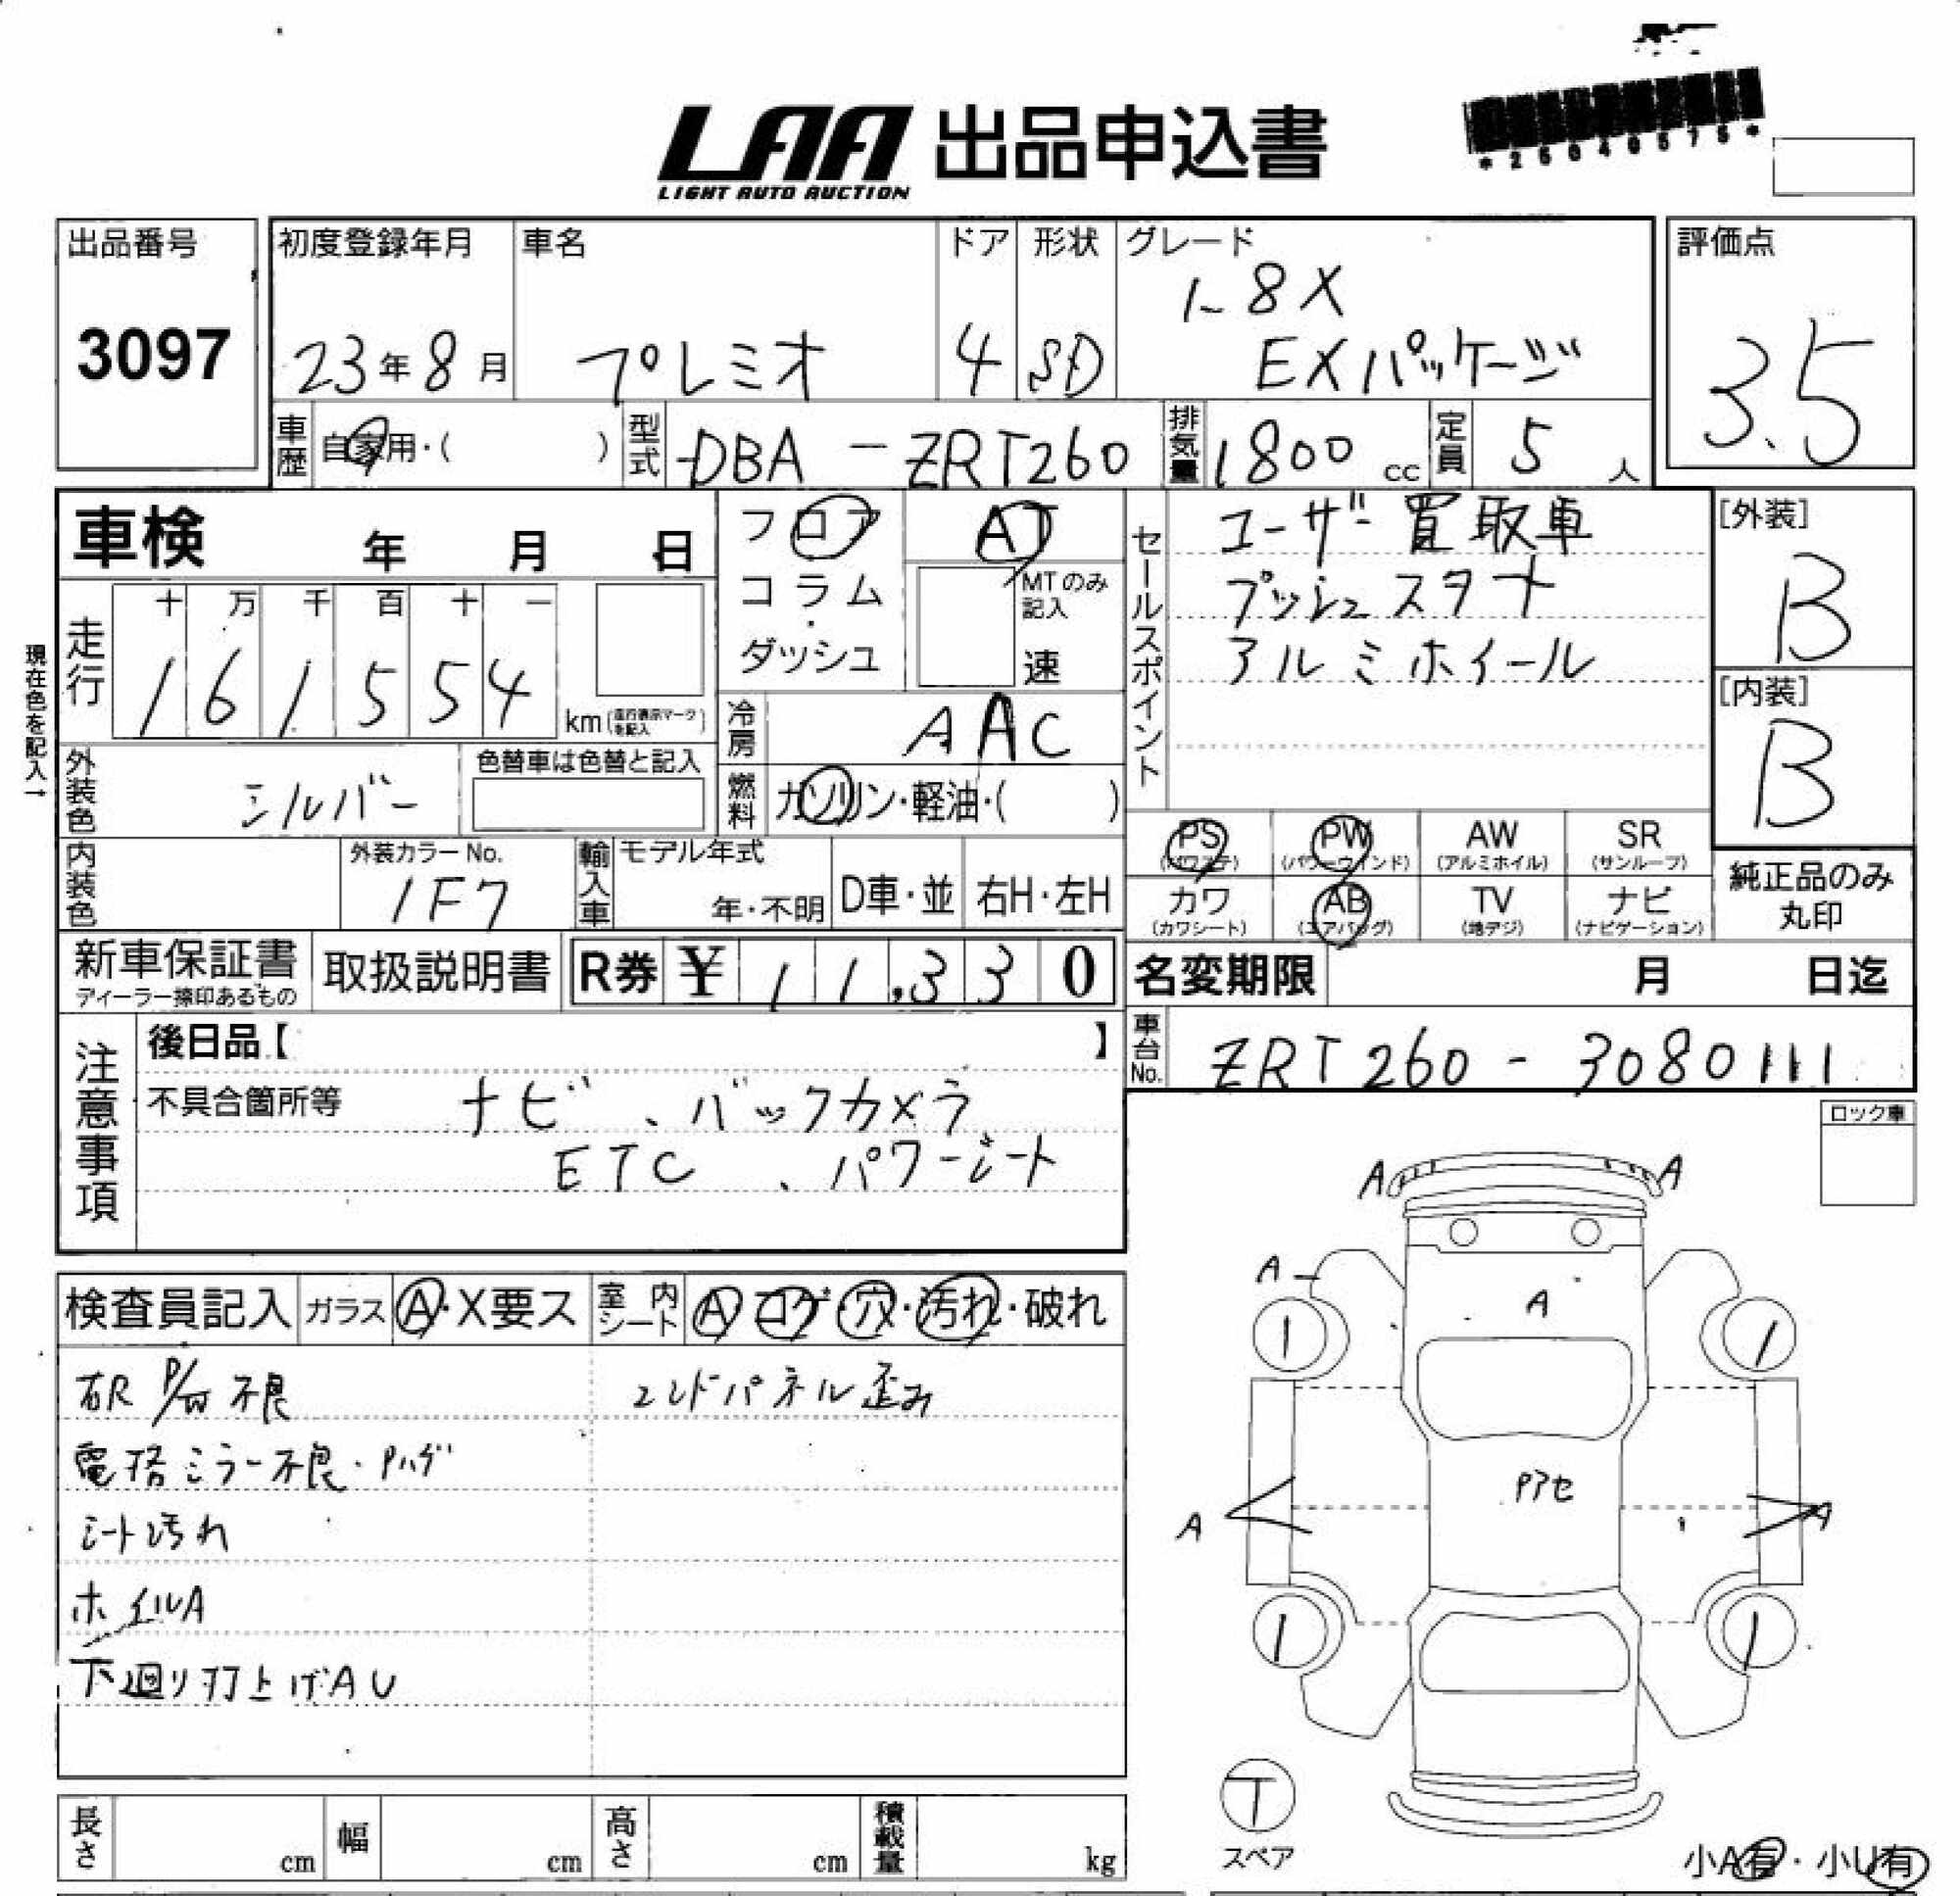 LAA 出品申込書
LIGHT AUTO AUCTION
*26040575*
出品番号
3097
初度登録年月
23年8月
車名
プレミオ
ドア
4
形状
SD
グレード
1.8X
EXパッケージ
評価点
3.5
車歴
自家用・( )
型式
DBA-ZRT260
排気量
1800cc
定員
5人
車検 年 月 日
フロア
コラム
ダッシュ
AT
MTのみ記入
速
セールスポイント
ユーザー買取車
プッシュスタート
アルミホイール
[外装]
B
[内装]
B
現在色を記入→
走行
十 万 千 百 十 一
1 6 1 5 5 4
km(走行表示マークを記入)
冷房
AAC
外装色
シルバー
色替車は色替と記入
燃料
ガソリン・軽油・( )
内装色
外装カラーNo.
1F7
輸入車
モデル年式
年・不明
D車・並
右H・左H
PS (パワステ)
PW (パワーウインド)
AW (アルミホイル)
SR (サンルーフ)
カワ (カワシート)
AB (エアバッグ)
TV (地デジ)
ナビ (ナビゲーション)
純正品のみ
丸印
新車保証書
ディーラー捺印あるもの
取扱説明書
R券 ¥11,330
名変期限 月 日迄
車台No.
ZRT260-3080111
注意事項
後日品【 】
不具合箇所等
ナビ、バックカメラ
ETC、パワーシート
ロック車
検査員記入
ガラス A・X要ス
室内シート A コゲ・穴・汚れ・破れ
右R P/W不良
エンドパネル歪み
電格ミラー不良・Pハゲ
シート汚れ
ホイルA
下廻り打上げAU
A
A
A
A
Pアセ
A
A
T
スペア
長さ cm
幅 cm
高さ cm
積載量 kg
小A有・小U有